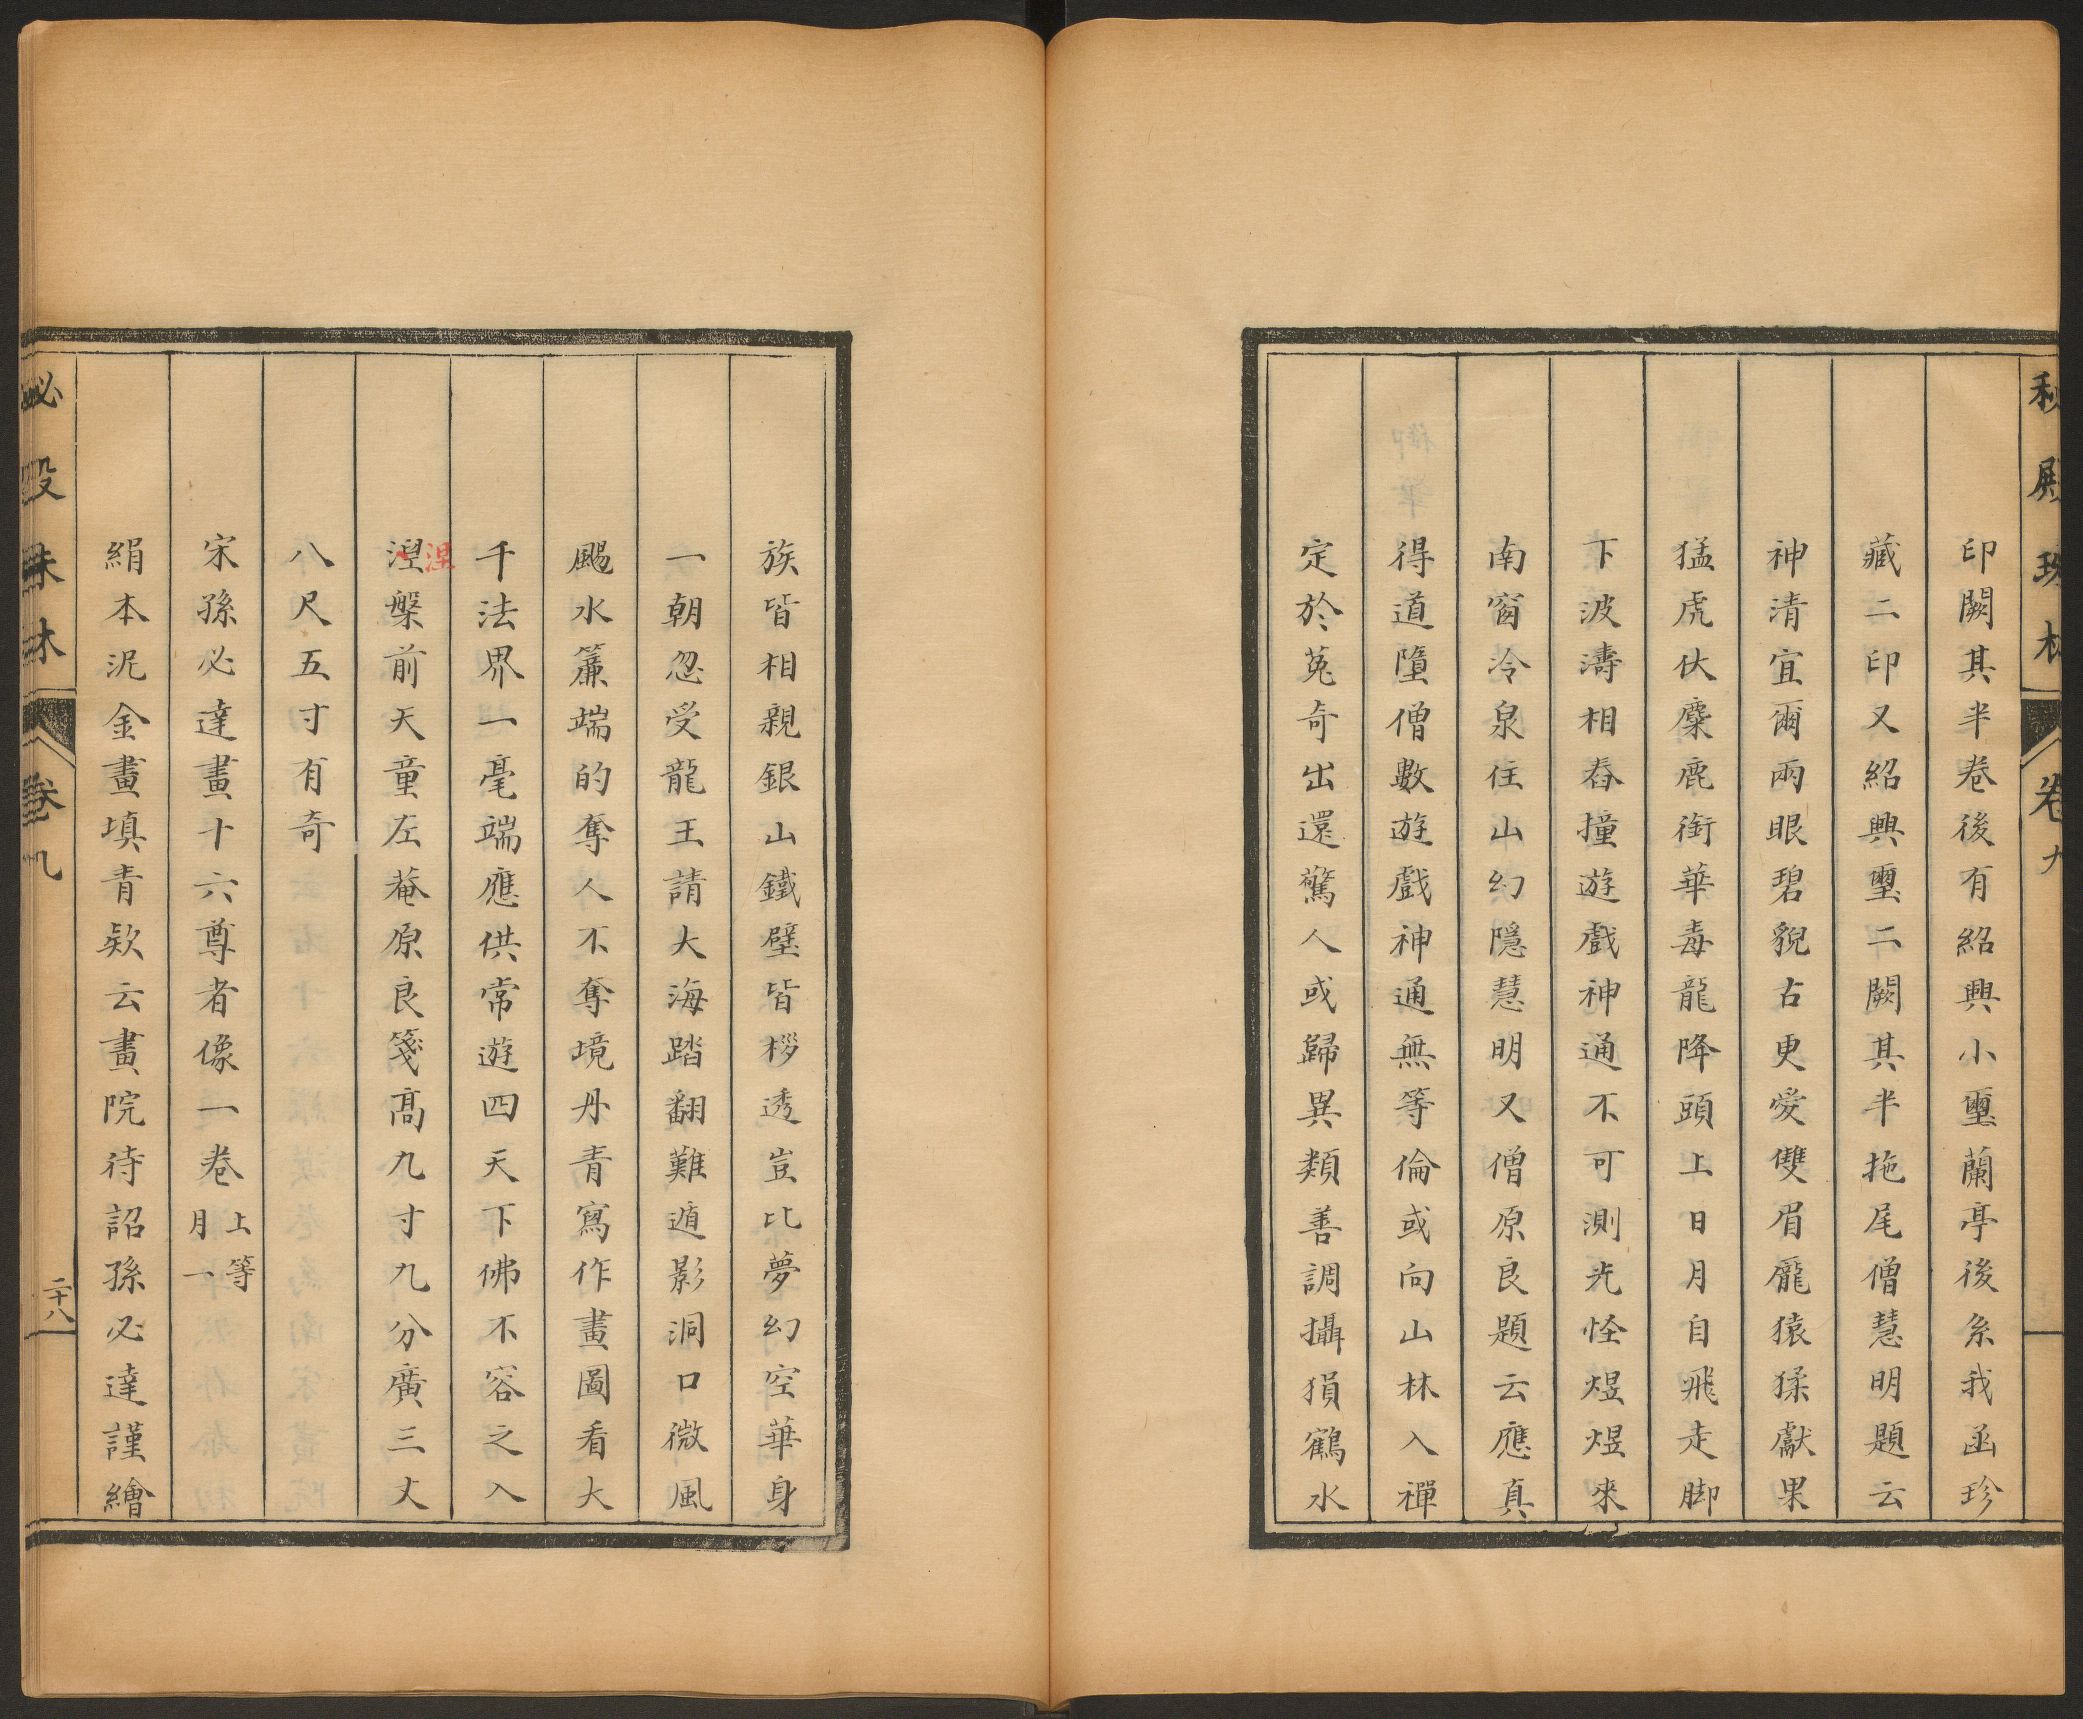 秘殿珠林
卷九
印闕其半卷後有紹興小璽蘭亭後系我函珍
藏二印又紹興璽二闕其半拖尾僧慧明題云
神清宜爾兩眼碧貌古更愛雙眉龐猿猱獻果
猛虎伏麋鹿銜華毒龍降頭上日月自飛走脚
下波濤相舂撞遊戲神通不可測光怪煜煜來
南窗冷泉住山幻隱慧明又僧原良題云應真
得道墮僧數遊戲神通無等倫或向山林入禪
定於菟奇出還驚人或歸異類善調攝猨鶴水
族皆相親銀山鐵壁皆拶透豈比夢幻空華身
一朝忽受龍王請大海踏翻難遁影洞口微風
颺水簾端的奪人不奪境丹青寫作畫圖看大
千法界一毫端應供常遊四天下佛不容之入
湼
湼槃前天童左菴原良箋高九寸九分廣三丈
八尺五寸有奇
宋孫必達畫十六尊者像一卷上等
月一
絹本泥金畫填青欵云畫院待詔孫必達謹繪
秘殿珠林
卷九
二十八